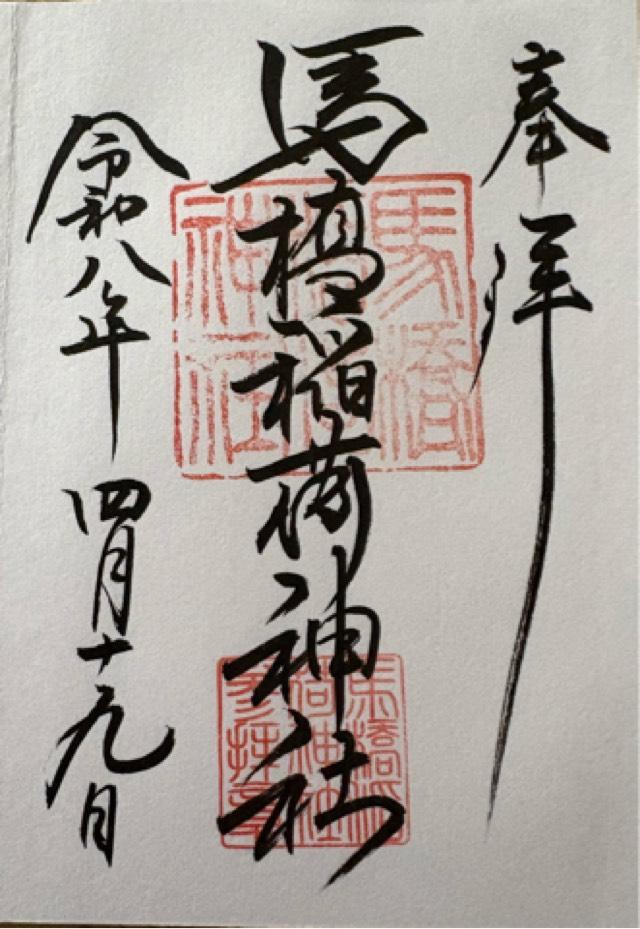 奉拝
馬橋稲荷神社
令和八年 四月十九日
馬橋稲荷神社
馬橋稲荷神社参拝章